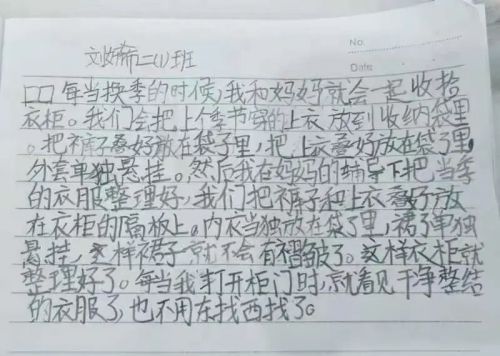 No.
Date
刘妍希二(1)班
□□每当换季的时候,我和妈妈就会一起收拾
衣柜。我们会把上个季节穿的上衣放到收纳袋里
。把裤子叠好放在袋子里,把上衣叠好放在袋子里,
外套单独悬挂。然后我在妈妈的辅导下把当季
的衣服整理好,我们把裤子和上衣叠好放
在衣柜的隔板上。内衣当独放在袋子里,裙子单独
悬挂,这样裙子就不会有褶皱了。这样衣柜就
整理好了。每当我打开柜门时,就看见干净整结
的衣服了,也不用在找西找了。